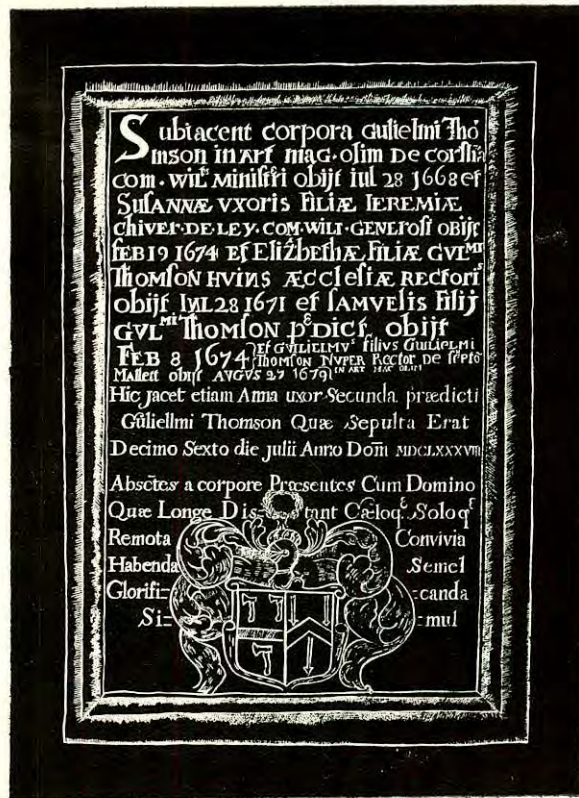 Subiacent corpora Gulielmi Thō
mson in Art mag. olim De Corstiā
com. Wilᵗˢ Ministri obijt iul 28 1668 et
Susannæ vxoris filiæ Ieremiæ
chiver. De Ley. com. Wilt. Generosi obijt
Feb 19 1674 et Elizbethæ filiæ Gulᴹᴵ
Thomson Huius Æcclesiæ Rectoriˢ
obijt Iul 28 1671 et Samuelis filij
Gulᴹᴵ Thomson p̄dict obijt
Feb 8 1674 Et Guilielmus filius Guilielmi
Thomson Nuper Rector De
Mallett obijt Augus 27 1679 in art mag olim
Hic jacet etiam Anna uxor Secunda prædicti
Gūliellmi Thomson Quæ Sepulta Erat
Decimo Sexto die julii Anno Dom̄ MDCLXXXVIII
Absc̄tes a corpore Præsentes Cum Domino
Quæ Longe Dis= =tant Cæloqᵉ Soloqᵉ
Remota Convivia
Habenda Semel
Glorifi= =canda
Si= =mul